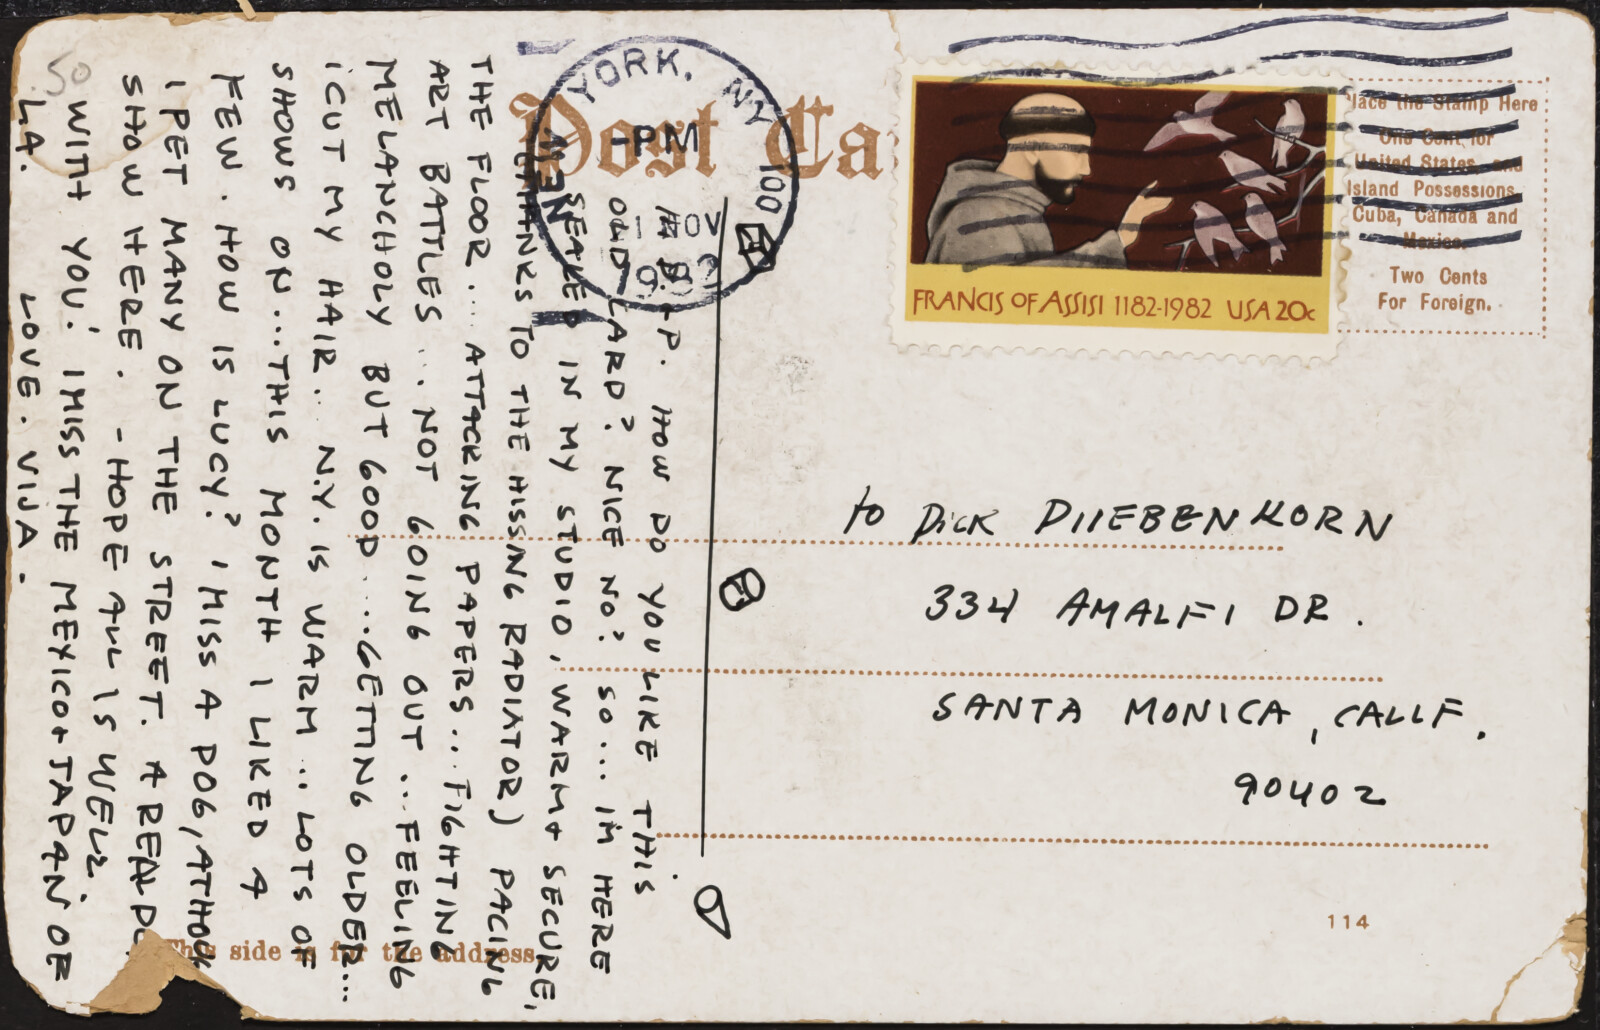 Post Ca
YORK, NY 100
-PM
1 NOV
198
NEW
lace the Stamp Here
One Cent for
United States, and
Island Possessions
Cuba, Canada and
Mexico.
Two Cents
For Foreign.
FRANCIS OF ASSISI 1182-1982 USA 20c
.50
P. HOW DO YOU LIKE THIS
OLD CARD? NICE NO? SO... IM HERE
SEATED IN MY STUDIO, WARM & SECURE,
(THANKS TO THE HISSING RADIATOR) PACING
THE FLOOR... ATTACKING PAPERS... FIGHTING
ART BATTLES... NOT GOING OUT... FEELING
MELANCHOLY BUT GOOD... GETTING OLDER...
I CUT MY HAIR.. N.Y. IS WARM... LOTS OF
SHOWS ON... THIS MONTH I LIKED A
FEW. HOW IS LUCY? I MISS A DOG, ATHOU
I PET MANY ON THE STREET. A REAL DO
SHOW HERE. - HOPE ALL IS WELL
WITH YOU. I MISS THE MEXICO & JAPAN OF
L.A. LOVE. VIJA.
to DICK DIIEBENKORN
334 AMALFI DR.
SANTA MONICA, CALIF.
90402
114
This side is for the address.